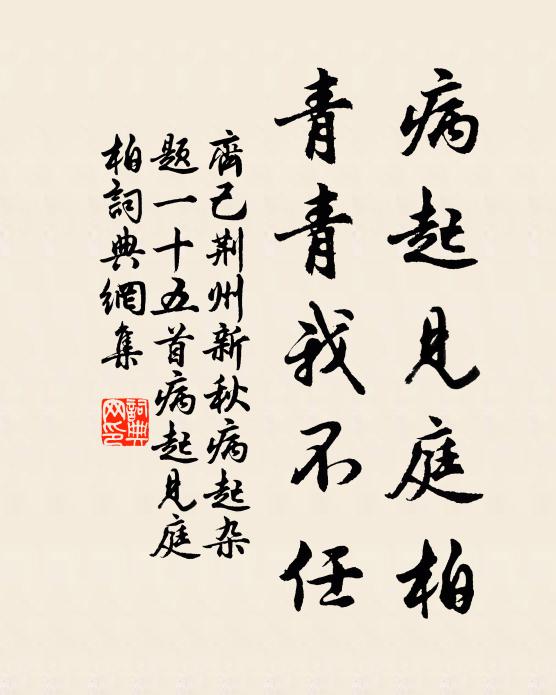 病起見庭柏
青青我不任
齊己荆州新秋病起杂
题一十五首病起見庭
柏詞典網集
詞典
网印